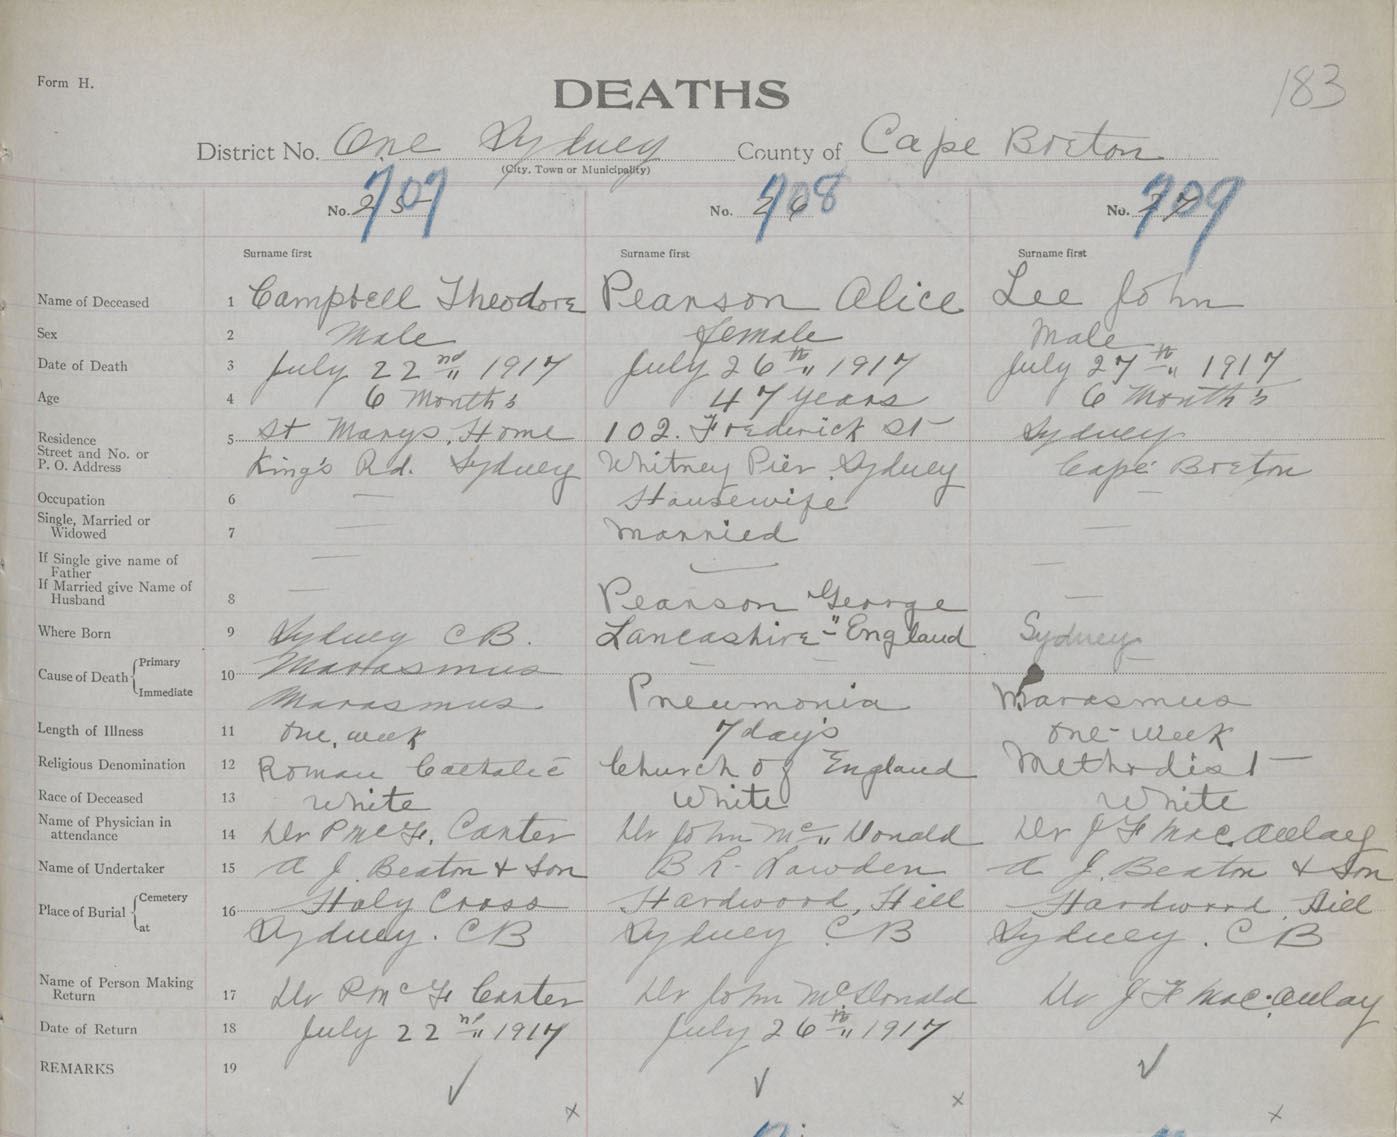 Form H.
DEATHS
183
District No. One Sydney County of Cape Breton
(City, Town or Municipality)
No. 25 707 No. 26 708 No. 27 709
Surname first Surname first Surname first
Name of Deceased 1 Campbell Theodore Pearson Alice Lee John
Sex 2 Male female Male
Date of Death 3 July 22nd 1917 July 26th 1917 July 27th 1917
Age 4 6 Months 47 years 6 Months
Residence 5 St Marys. Home 102. Frederick St Sydney
Street and No. or
P. O. Address King's Rd. Sydney Whitney Pier Sydney Cape Breton
Occupation 6 — Housewife —
Single, Married or
Widowed 7 — Married —
If Single give name of
Father — — —
If Married give Name of
Husband 8 — Pearson George —
Where Born 9 Sydney C B. Lancashire - England Sydney
Cause of Death Primary 10 Marasmus — —
Immediate Marasmus Pneumonia Marasmus
Length of Illness 11 One week 7 days One - week
Religious Denomination 12 Roman Catholic Church of England Methodist
Race of Deceased 13 White White White
Name of Physician in
attendance 14 Dr P McF. Carter Dr John Mc Donald Dr J F Mac.Aulay
Name of Undertaker 15 A J. Beaton & Son A J. Beaton & Son
Place of Burial Cemetery 16 Holy Cross Hardwood Hill Hardwood Hill
at Sydney. C B Sydney C B Sydney. C B
Name of Person Making
Return 17 Dr P Mc F Carter Dr John McDonald Dr J F Mac.Aulay
Date of Return 18 July 22nd 1917 July 26th 1917
REMARKS 19 ✓ ✓ ✓
x x x